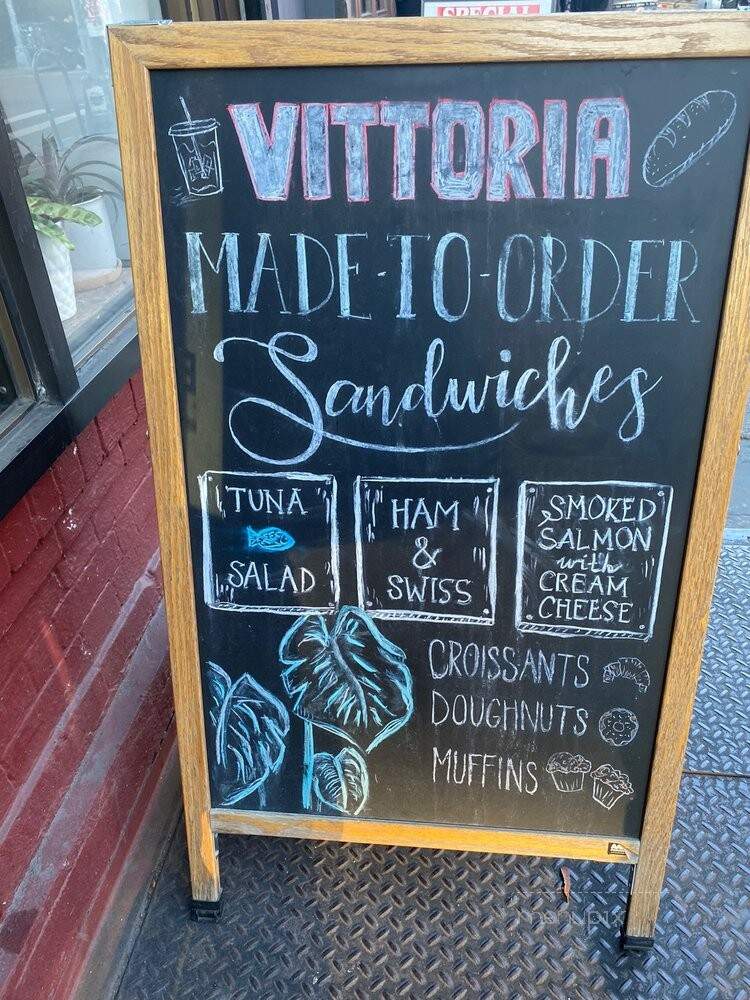 SPECIAL
VITTORIA
MADE-TO-ORDER
Sandwiches
TUNA
SALAD
HAM
&
SWISS
SMOKED
SALMON
with
CREAM
CHEESE
CROISSANTS
DOUGHNUTS
MUFFINS
menupix